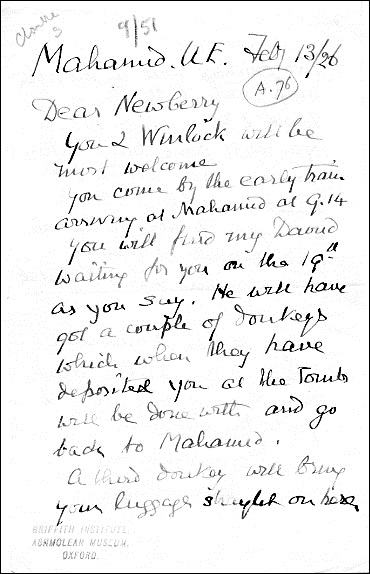 9/51
Mahamid. U.E. Feby 13/26
A.76
Dear Newberry
You & Winlock will be
most welcome
You come by the early train
arriving at Mahamid at 9.14
You will find my Daoud
waiting for you on the 19th
as you say. He will have
got a couple of donkeys
which when they have
deposited you at the Tombs
will be done with and go
back to Mahamid.
A third donkey will bring
your luggage straight on
GRIFFITH INSTITUTE,
ASHMOLEAN MUSEUM,
OXFORD.